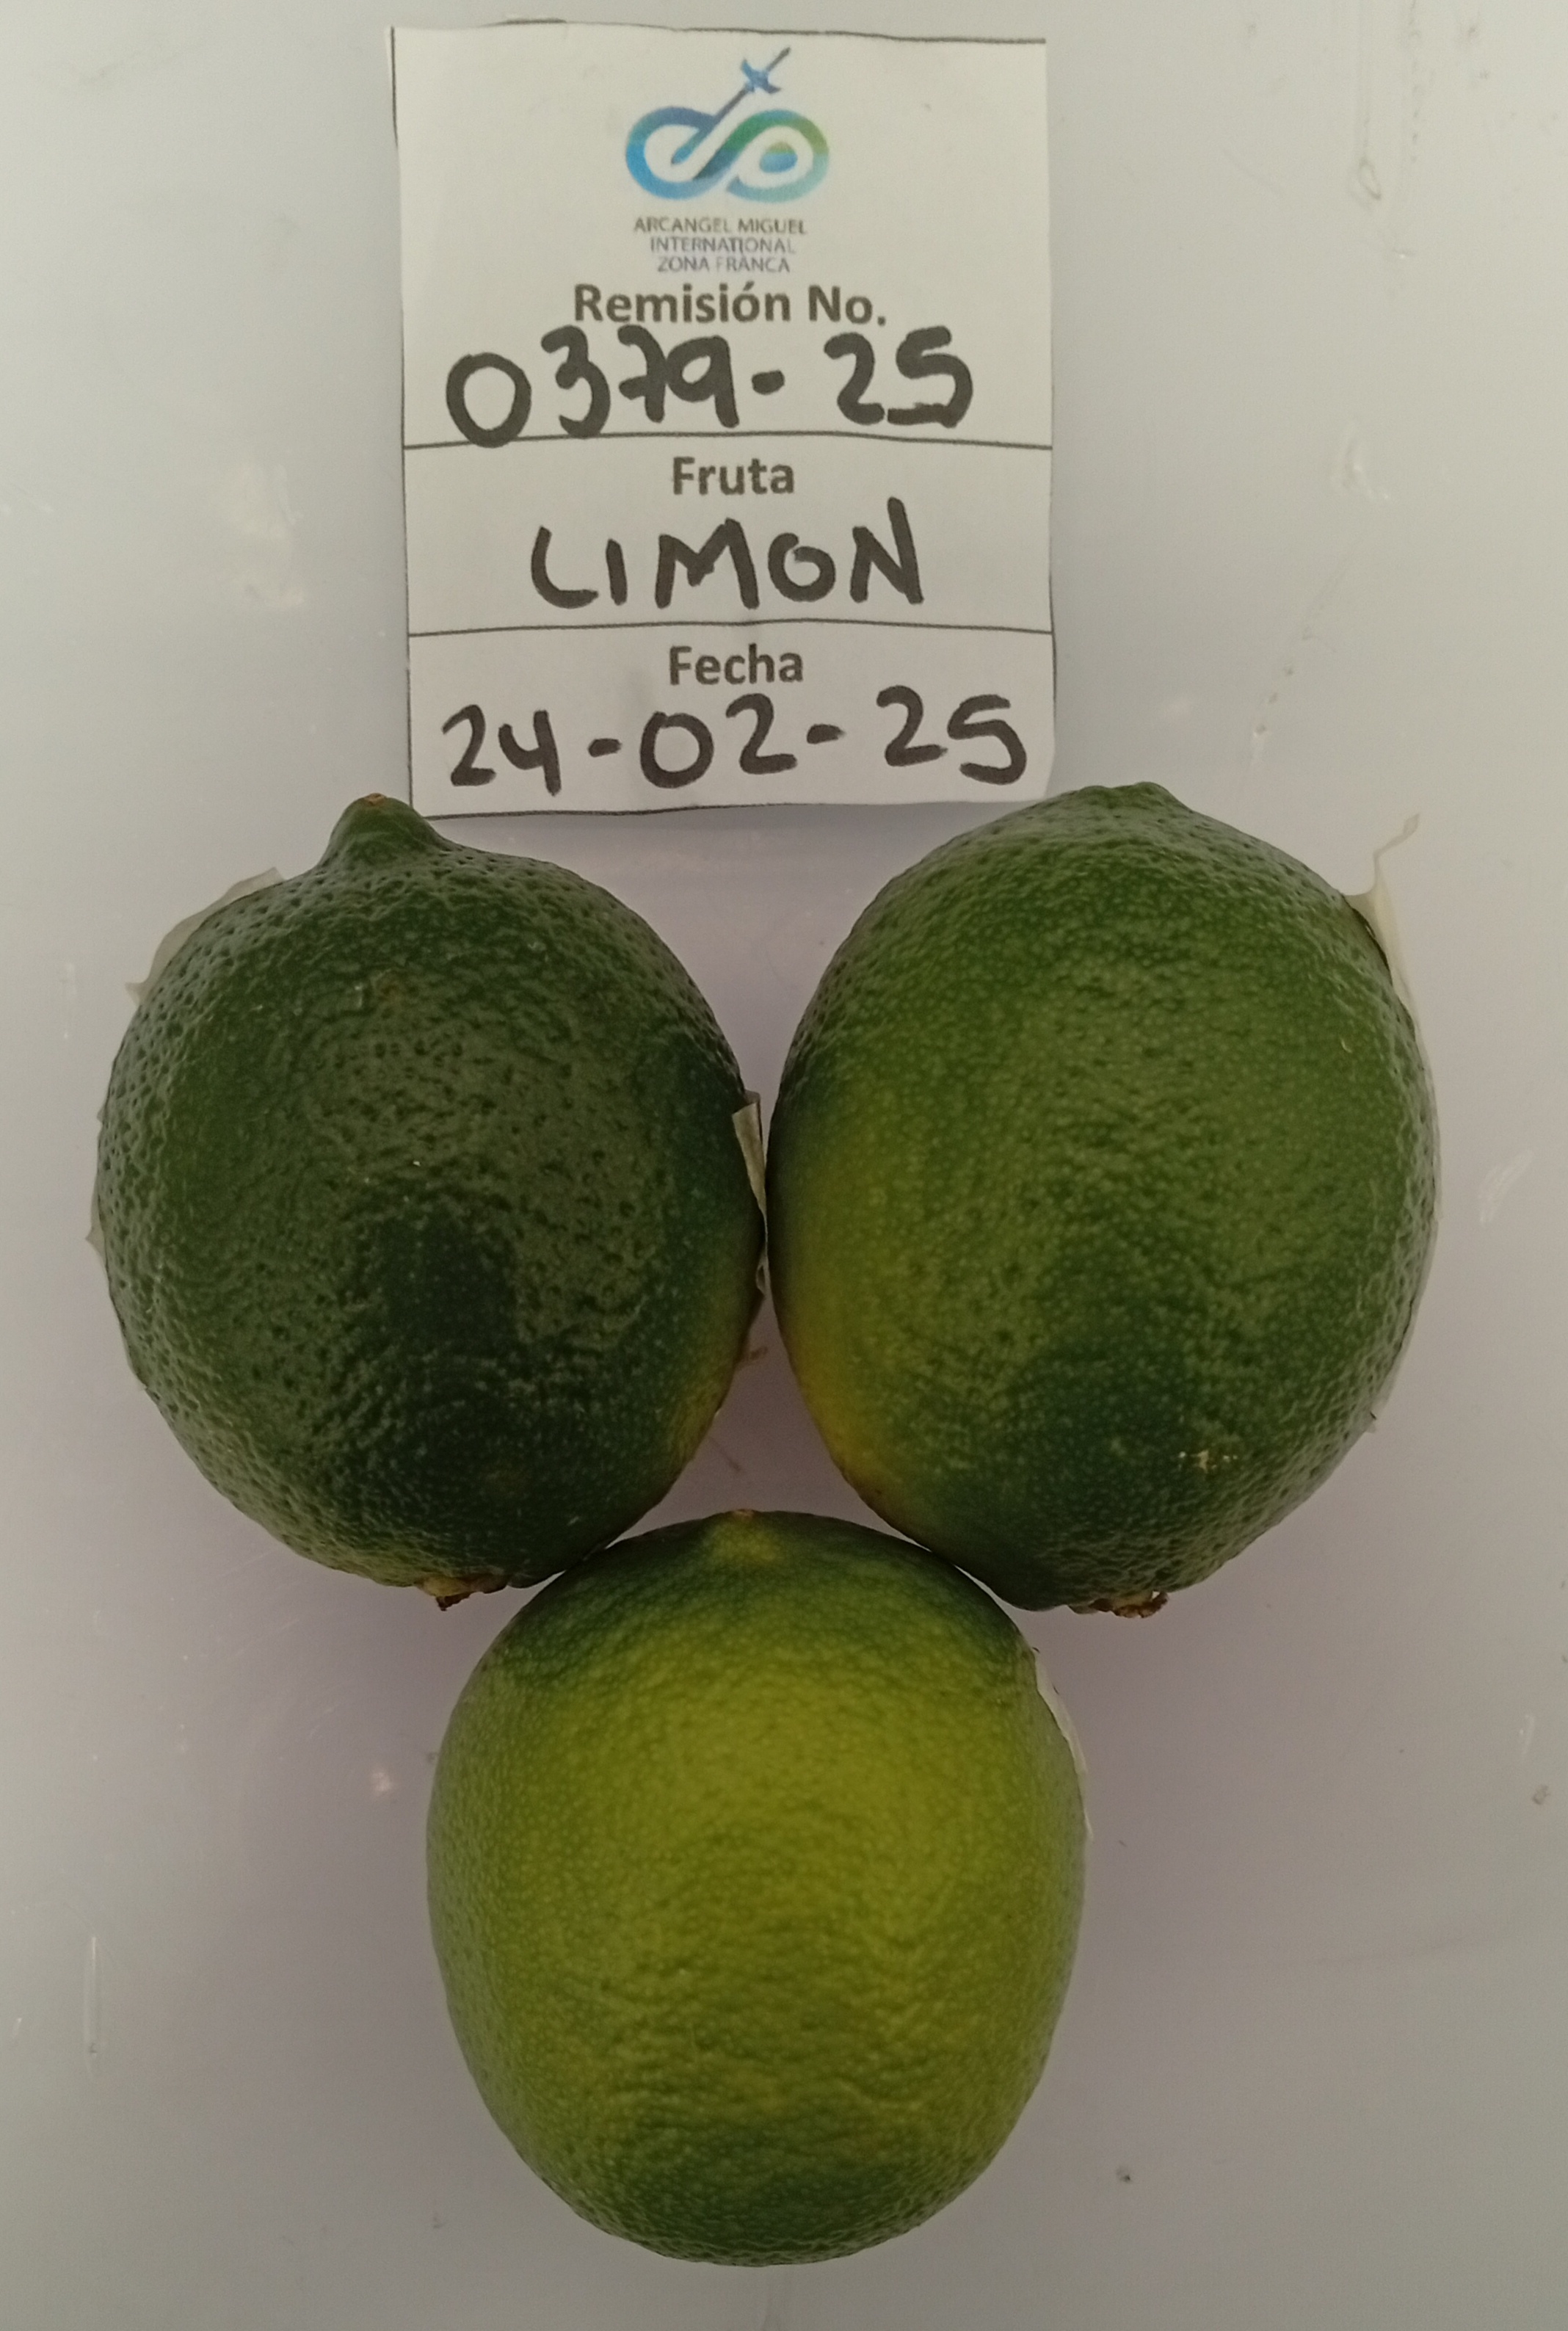 ARCANGEL MIGUEL
INTERNATIONAL
ZONA FRANCA
Remisión No.
0379-25
Fruta
LIMON
Fecha
24-02-25